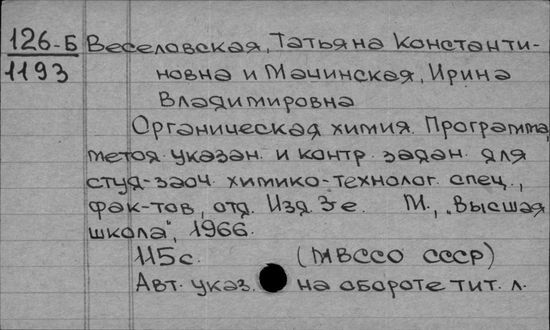 126-Б Веселовская, Татьяна Константи-
1193 новна и Мачинская, Ирина
Владимировна
Органическая химия. Программа,
метод. указан. и контр. задан. для
студ-заоч. химико-технолог. спец.,
фак-тов, отд. Изд. 3-е. М., "Высшая
школа", 1966.
115 с. (МВССО СССР)
Авт. указ. на обороте тит. л.